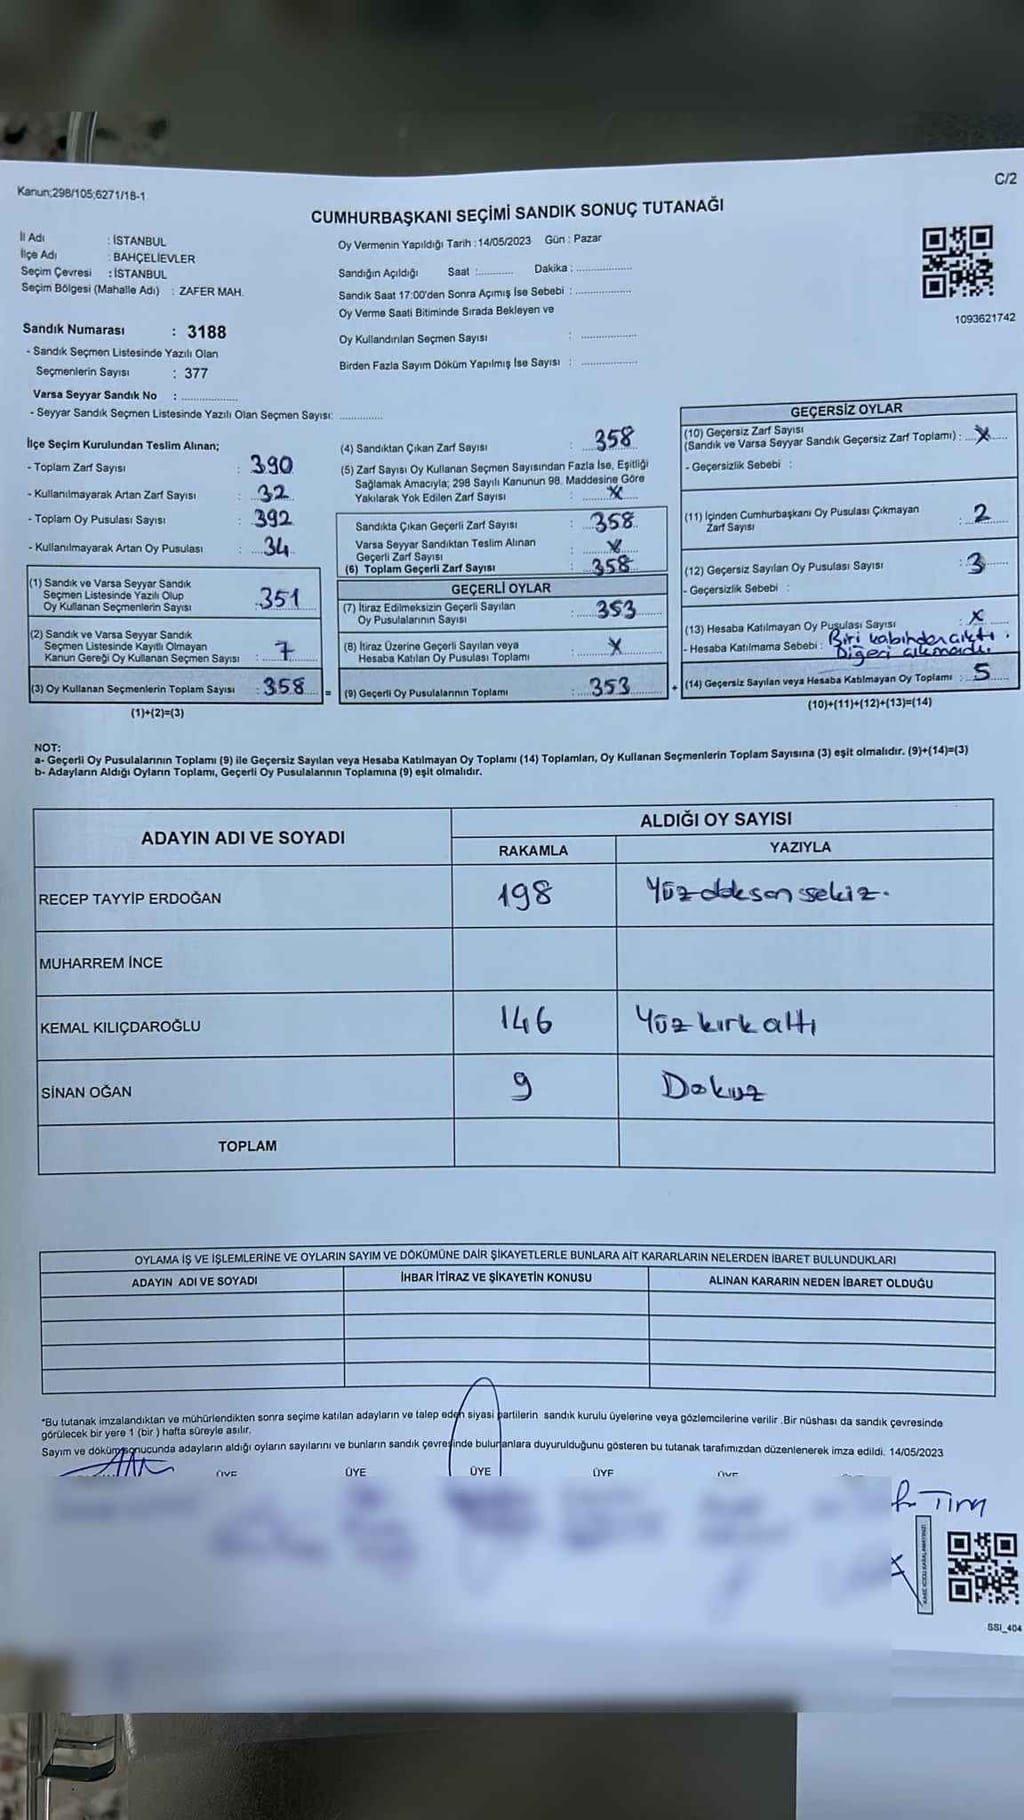 Kanun;298/105;6271/18-1
C/2
CUMHURBAŞKANI SEÇİMİ SANDIK SONUÇ TUTANAĞI
İl Adı : İSTANBUL
İlçe Adı : BAHÇELİEVLER
Seçim Çevresi : İSTANBUL
Seçim Bölgesi (Mahalle Adı) : ZAFER MAH.
Sandık Numarası : 3188
- Sandık Seçmen Listesinde Yazılı Olan
Seçmenlerin Sayısı : 377
Varsa Seyyar Sandık No : ................
- Seyyar Sandık Seçmen Listesinde Yazılı Olan Seçmen Sayısı: ............
Oy Vermenin Yapıldığı Tarih : 14/05/2023 Gün : Pazar
Sandığın Açıldığı Saat :........... Dakika : ................
Sandık Saat 17:00'den Sonra Açımış İse Sebebi : ................
Oy Verme Saati Bitiminde Sırada Bekleyen ve
Oy Kullandırılan Seçmen Sayısı : ................
Birden Fazla Sayım Döküm Yapılmış İse Sayısı : ................
1093621742
İlçe Seçim Kurulundan Teslim Alınan;
- Toplam Zarf Sayısı : 390
- Kullanılmayarak Artan Zarf Sayısı : 32
- Toplam Oy Pusulası Sayısı : 392
- Kullanılmayarak Artan Oy Pusulası : 34
(1) Sandık ve Varsa Seyyar Sandık
Seçmen Listesinde Yazılı Olup
Oy Kullanan Seçmenlerin Sayısı : 351
(2) Sandık ve Varsa Seyyar Sandık
Seçmen Listesinde Kayıtlı Olmayan
Kanun Gereği Oy Kullanan Seçmen Sayısı : 7
(3) Oy Kullanan Seçmenlerin Toplam Sayısı : 358 =
(1)+(2)=(3)
(4) Sandıktan Çıkan Zarf Sayısı : 358
(5) Zarf Sayısı Oy Kullanan Seçmen Sayısından Fazla İse, Eşitliği
Sağlamak Amacıyla; 298 Sayılı Kanunun 98. Maddesine Göre
Yakılarak Yok Edilen Zarf Sayısı : X
Sandıkta Çıkan Geçerli Zarf Sayısı : 358
Varsa Seyyar Sandıktan Teslim Alınan
Geçerli Zarf Sayısı : X
(6) Toplam Geçerli Zarf Sayısı : 358
GEÇERLİ OYLAR
(7) İtiraz Edilmeksizin Geçerli Sayılan
Oy Pusulalarının Sayısı : 353
(8) İtiraz Üzerine Geçerli Sayılan veya
Hesaba Katılan Oy Pusulası Toplamı : X
(9) Geçerli Oy Pusulalarının Toplamı : 353 +
GEÇERSİZ OYLAR
(10) Geçersiz Zarf Sayısı
(Sandık ve Varsa Seyyar Sandık Geçersiz Zarf Toplamı) : X
- Geçersizlik Sebebi :
(11) İçinden Cumhurbaşkanı Oy Pusulası Çıkmayan
Zarf Sayısı : 2
(12) Geçersiz Sayılan Oy Pusulası Sayısı : 3
- Geçersizlik Sebebi :
(13) Hesaba Katılmayan Oy Pusulası Sayısı : X
- Hesaba Katılmama Sebebi : Biri kabından çıktı.
Diğeri çıkmadı.
(14) Geçersiz Sayılan veya Hesaba Katılmayan Oy Toplamı : 5
(10)+(11)+(12)+(13)=(14)
NOT:
a- Geçerli Oy Pusulalarının Toplamı (9) ile Geçersiz Sayılan veya Hesaba Katılmayan Oy Toplamı (14) Toplamları, Oy Kullanan Seçmenlerin Toplam Sayısına (3) eşit olmalıdır. (9)+(14)=(3)
b- Adayların Aldığı Oyların Toplamı, Geçerli Oy Pusulalarının Toplamına (9) eşit olmalıdır.
ADAYIN ADI VE SOYADI
ALDIĞI OY SAYISI
RAKAMLA YAZIYLA
RECEP TAYYİP ERDOĞAN 198 Yüzdoksan sekiz.
MUHARREM İNCE
KEMAL KILIÇDAROĞLU 146 Yüz kırk altı
SİNAN OĞAN 9 Dokuz
TOPLAM
OYLAMA İŞ VE İŞLEMLERİNE VE OYLARIN SAYIM VE DÖKÜMÜNE DAİR ŞİKAYETLERLE BUNLARA AİT KARARLARIN NELERDEN İBARET BULUNDUKLARI
ADAYIN ADI VE SOYADI İHBAR İTİRAZ VE ŞİKAYETİN KONUSU ALINAN KARARIN NEDEN İBARET OLDUĞU
*Bu tutanak imzalandıktan ve mühürlendikten sonra seçime katılan adayların ve talep eden siyasi partilerin sandık kurulu üyelerine veya gözlemcilerine verilir .Bir nüshası da sandık çevresinde
görülecek bir yere 1 (bir ) hafta süreyle asılır.
Sayım ve döküm sonucunda adayların aldığı oyların sayılarını ve bunların sandık çevresinde bulunanlara duyurulduğunu gösteren bu tutanak tarafımızdan düzenlenerek imza edildi. 14/05/2023
ÜYE ÜYE ÜYE ÜYE ÜYE
SSI_404